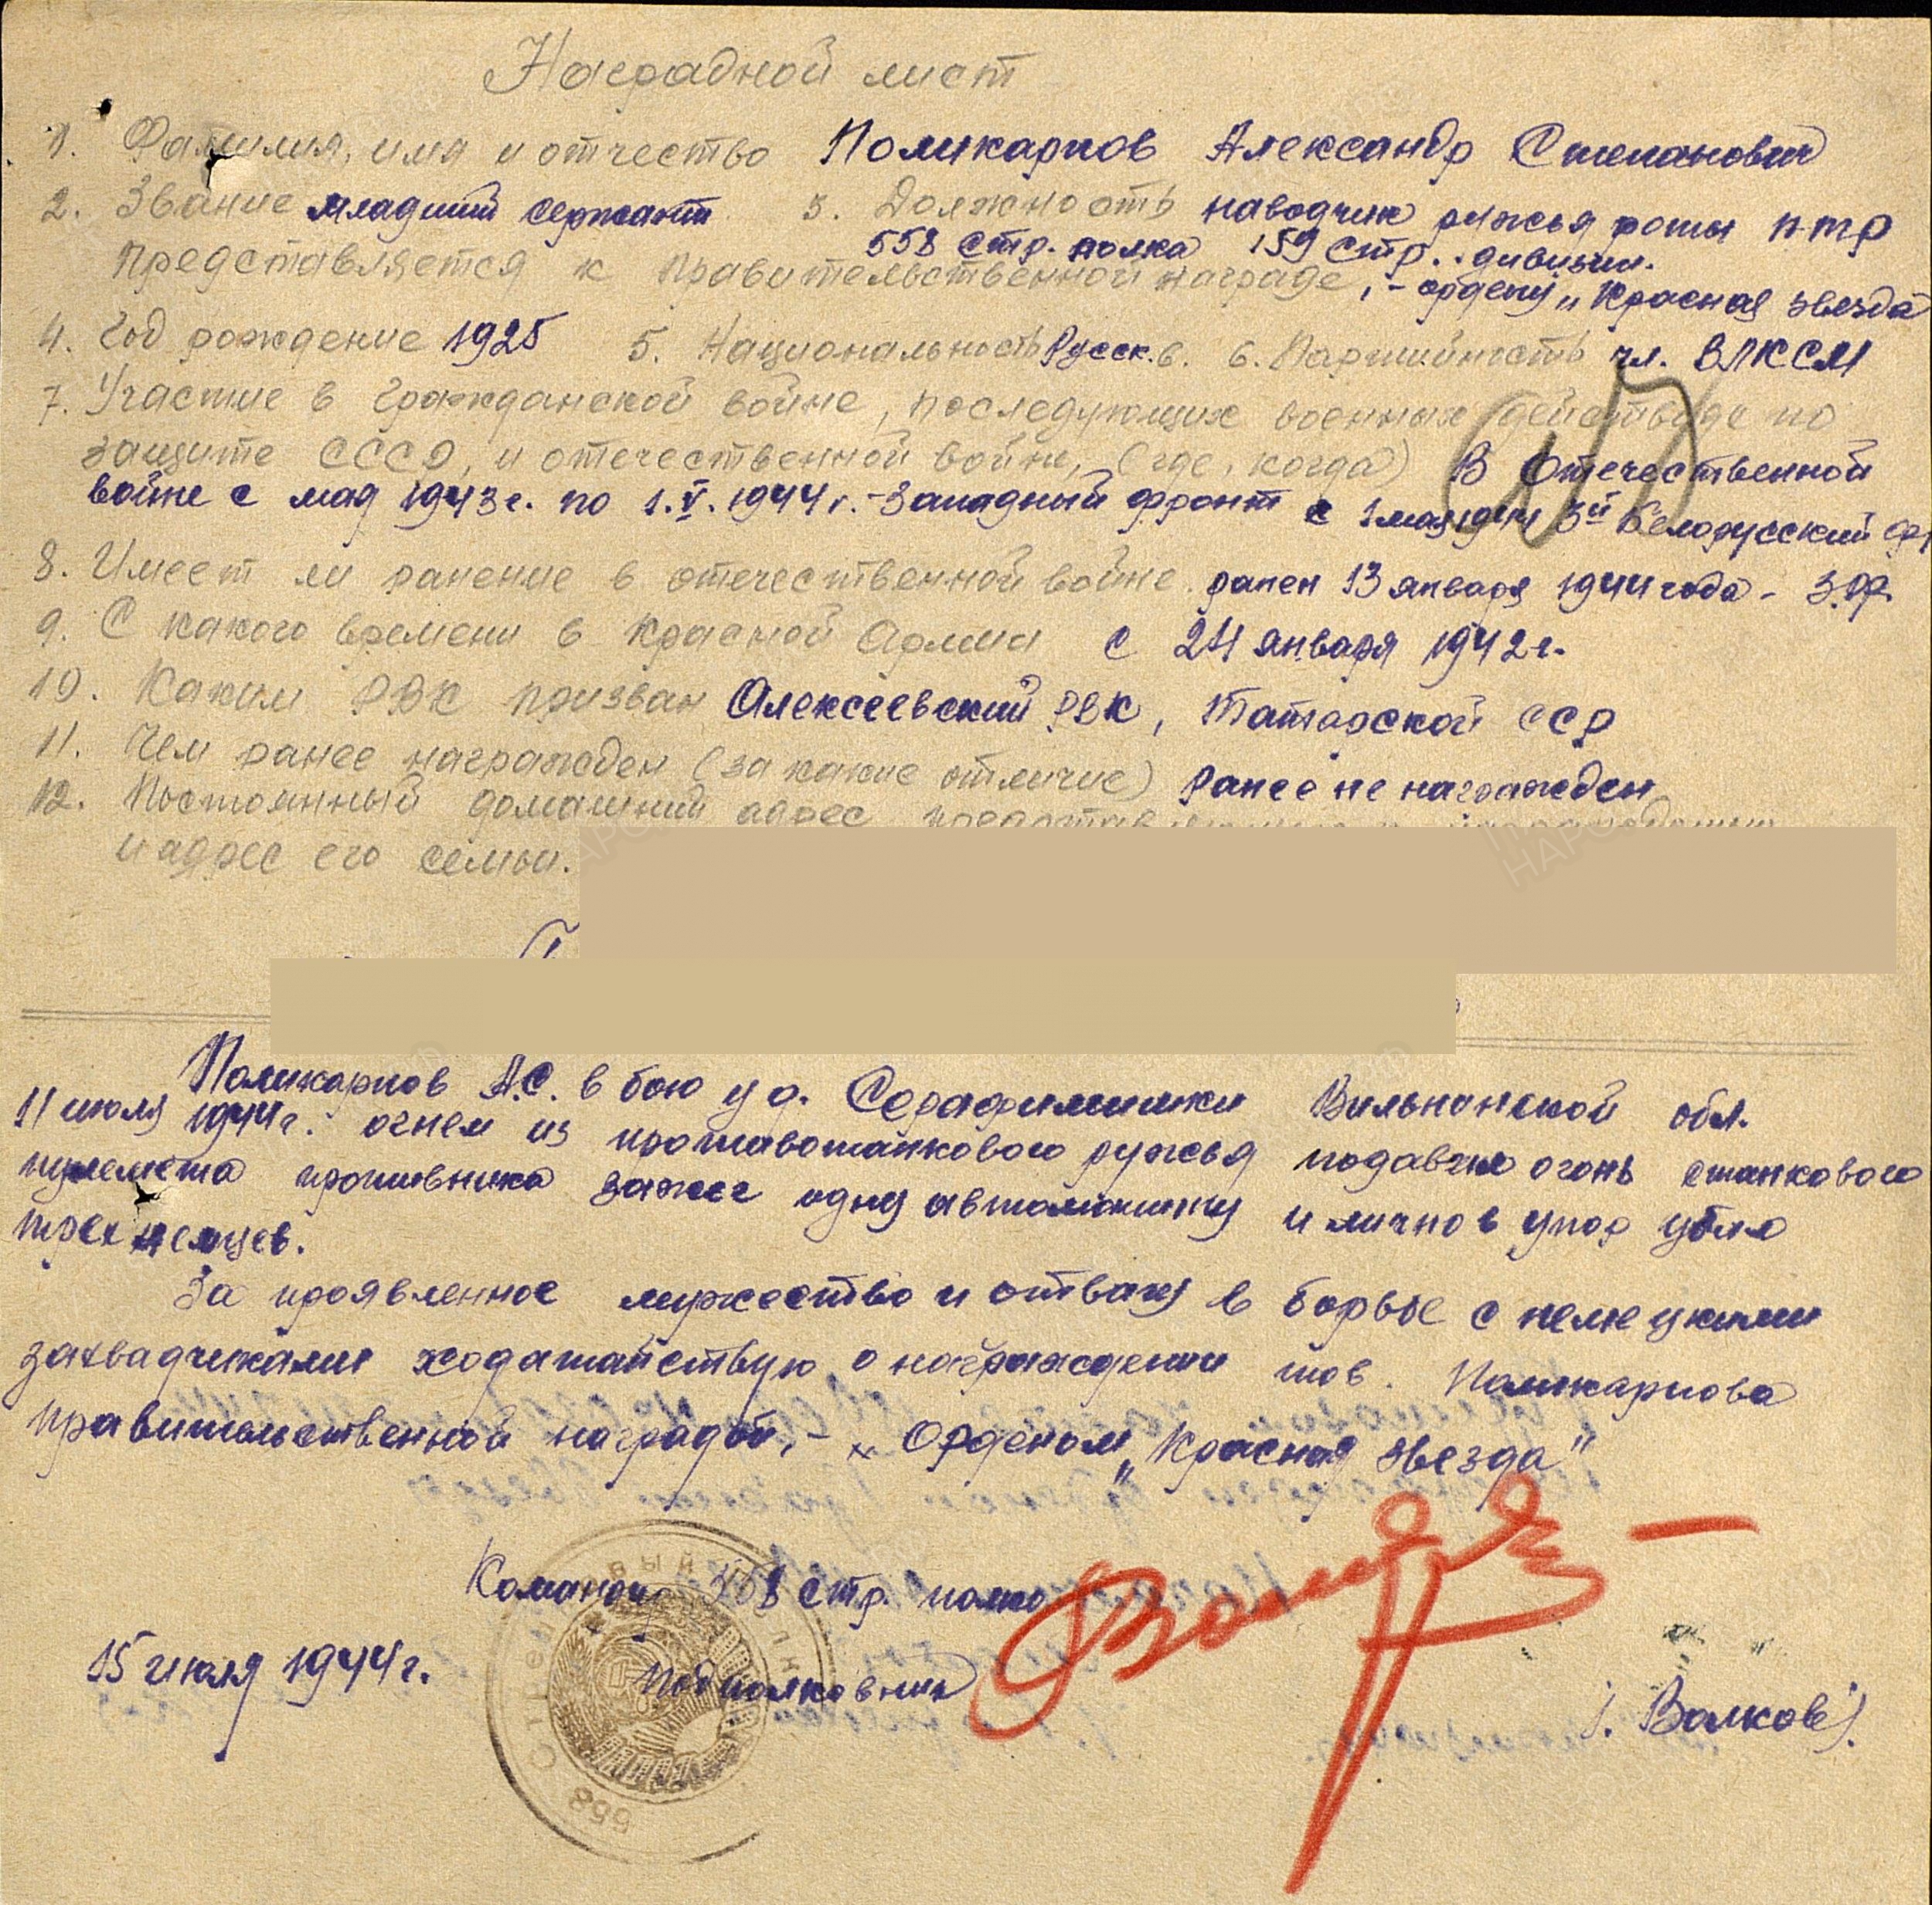 Наградной лист
1. Фамилия, имя и отчество Поликарпов Александр Степанович
2. Звание младший сержант 3. Должность наводчик ружья роты ПТР
558 стр. полка 159 стр. дивизии.
представляется к правительственной награде, - ордену „Красная звезда
4. Год рождение 1925 5. Национальность Русск. 6. Партийность чл. ВЛКСМ
7. Участие в гражданской войне, последующих военных действиде по
защите СССР, и отечественной войне, (где, когда) В Отечественной
войне с мая 1943 г. по 1.V.1944 г. - Западный фронт с 1 мая 1944 3й Белорусский фр
8. Имеет ли ранение в отечественной войне ранен 13 января 1944 года - З.Ф.
9. С какого времени в Красной Армии с 24 января 1942 г.
10. Каким РВК призван Алексеевский РВК, Татарской ССР
11. Чем ранее награжден (за какие отличие) Ранее не награжден
12. Постоянный домашний адрес
и адрес его семьи.
Поликарпов А.С. в бою у д. Серафимишки Вильненской обл.
11 июля 1944 г. огнем из противотанкового ружья подавил огонь станкового
пулемета противника зажег одну автомашину и лично в упор убил
трех немцев.
За проявленное мужество и отвагу в борьбе с немецкими
захвадчиками ходатайствую о награждении тов. Поликарпова
правительственной наградой, - Орденом „Красная звезда"
Командир 558 стр. полка
15 июля 1944 г. Подполковник (Волков).
558 Стрелковый полк